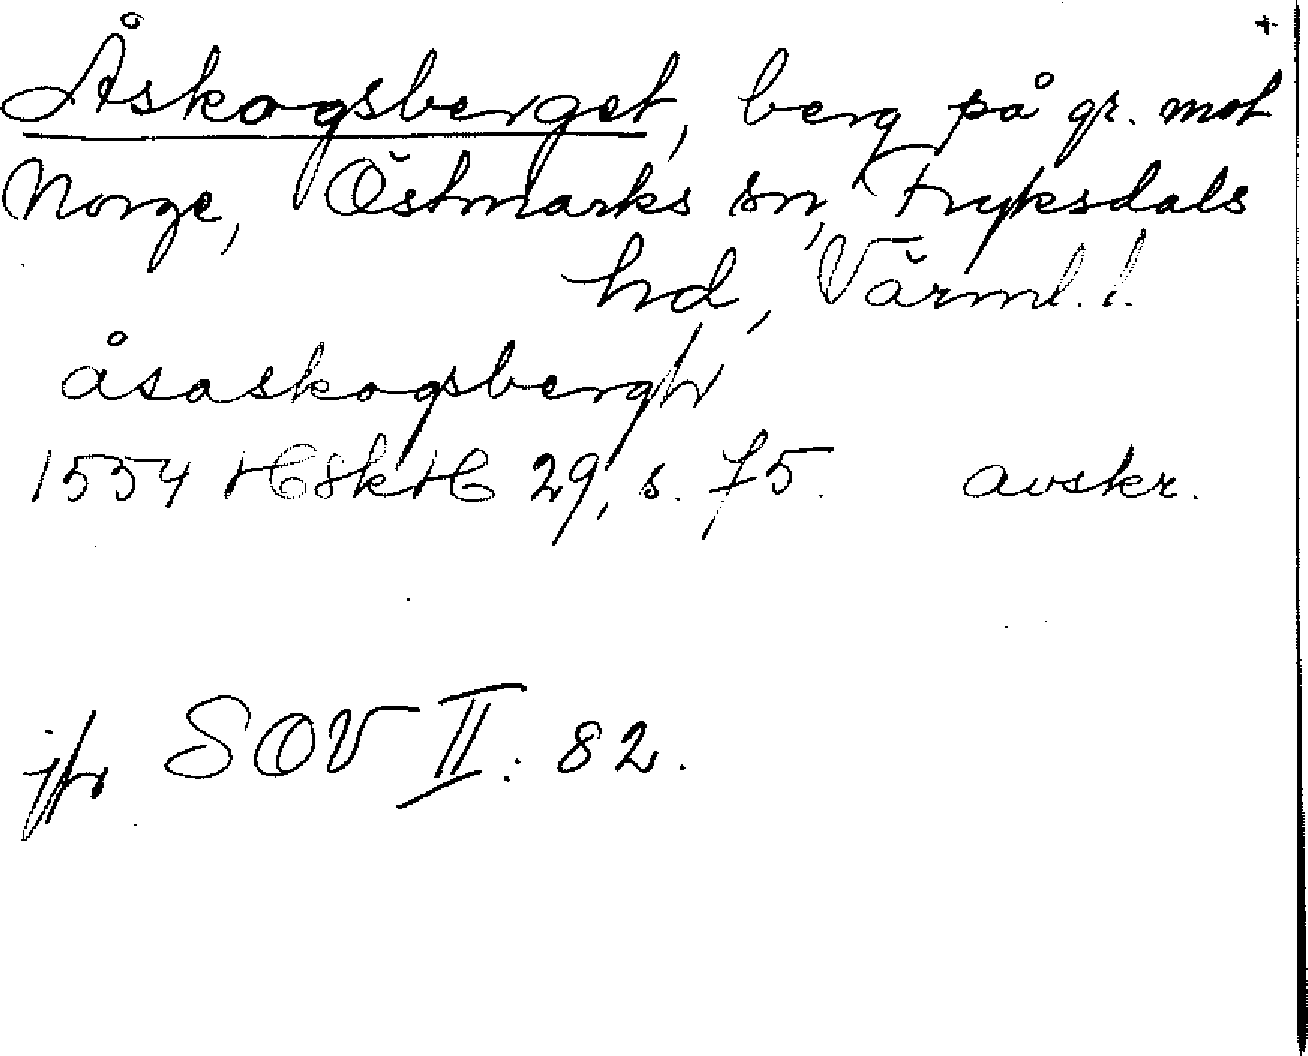 +
Åskogsberget, berg på gr. mot
Norge, Östmarks sn, Fryksdals
hd, Värml. l.
åsaskogsbergh
1554 HSkH 29, s. 75. avskr.
jfr SOV II: 82.